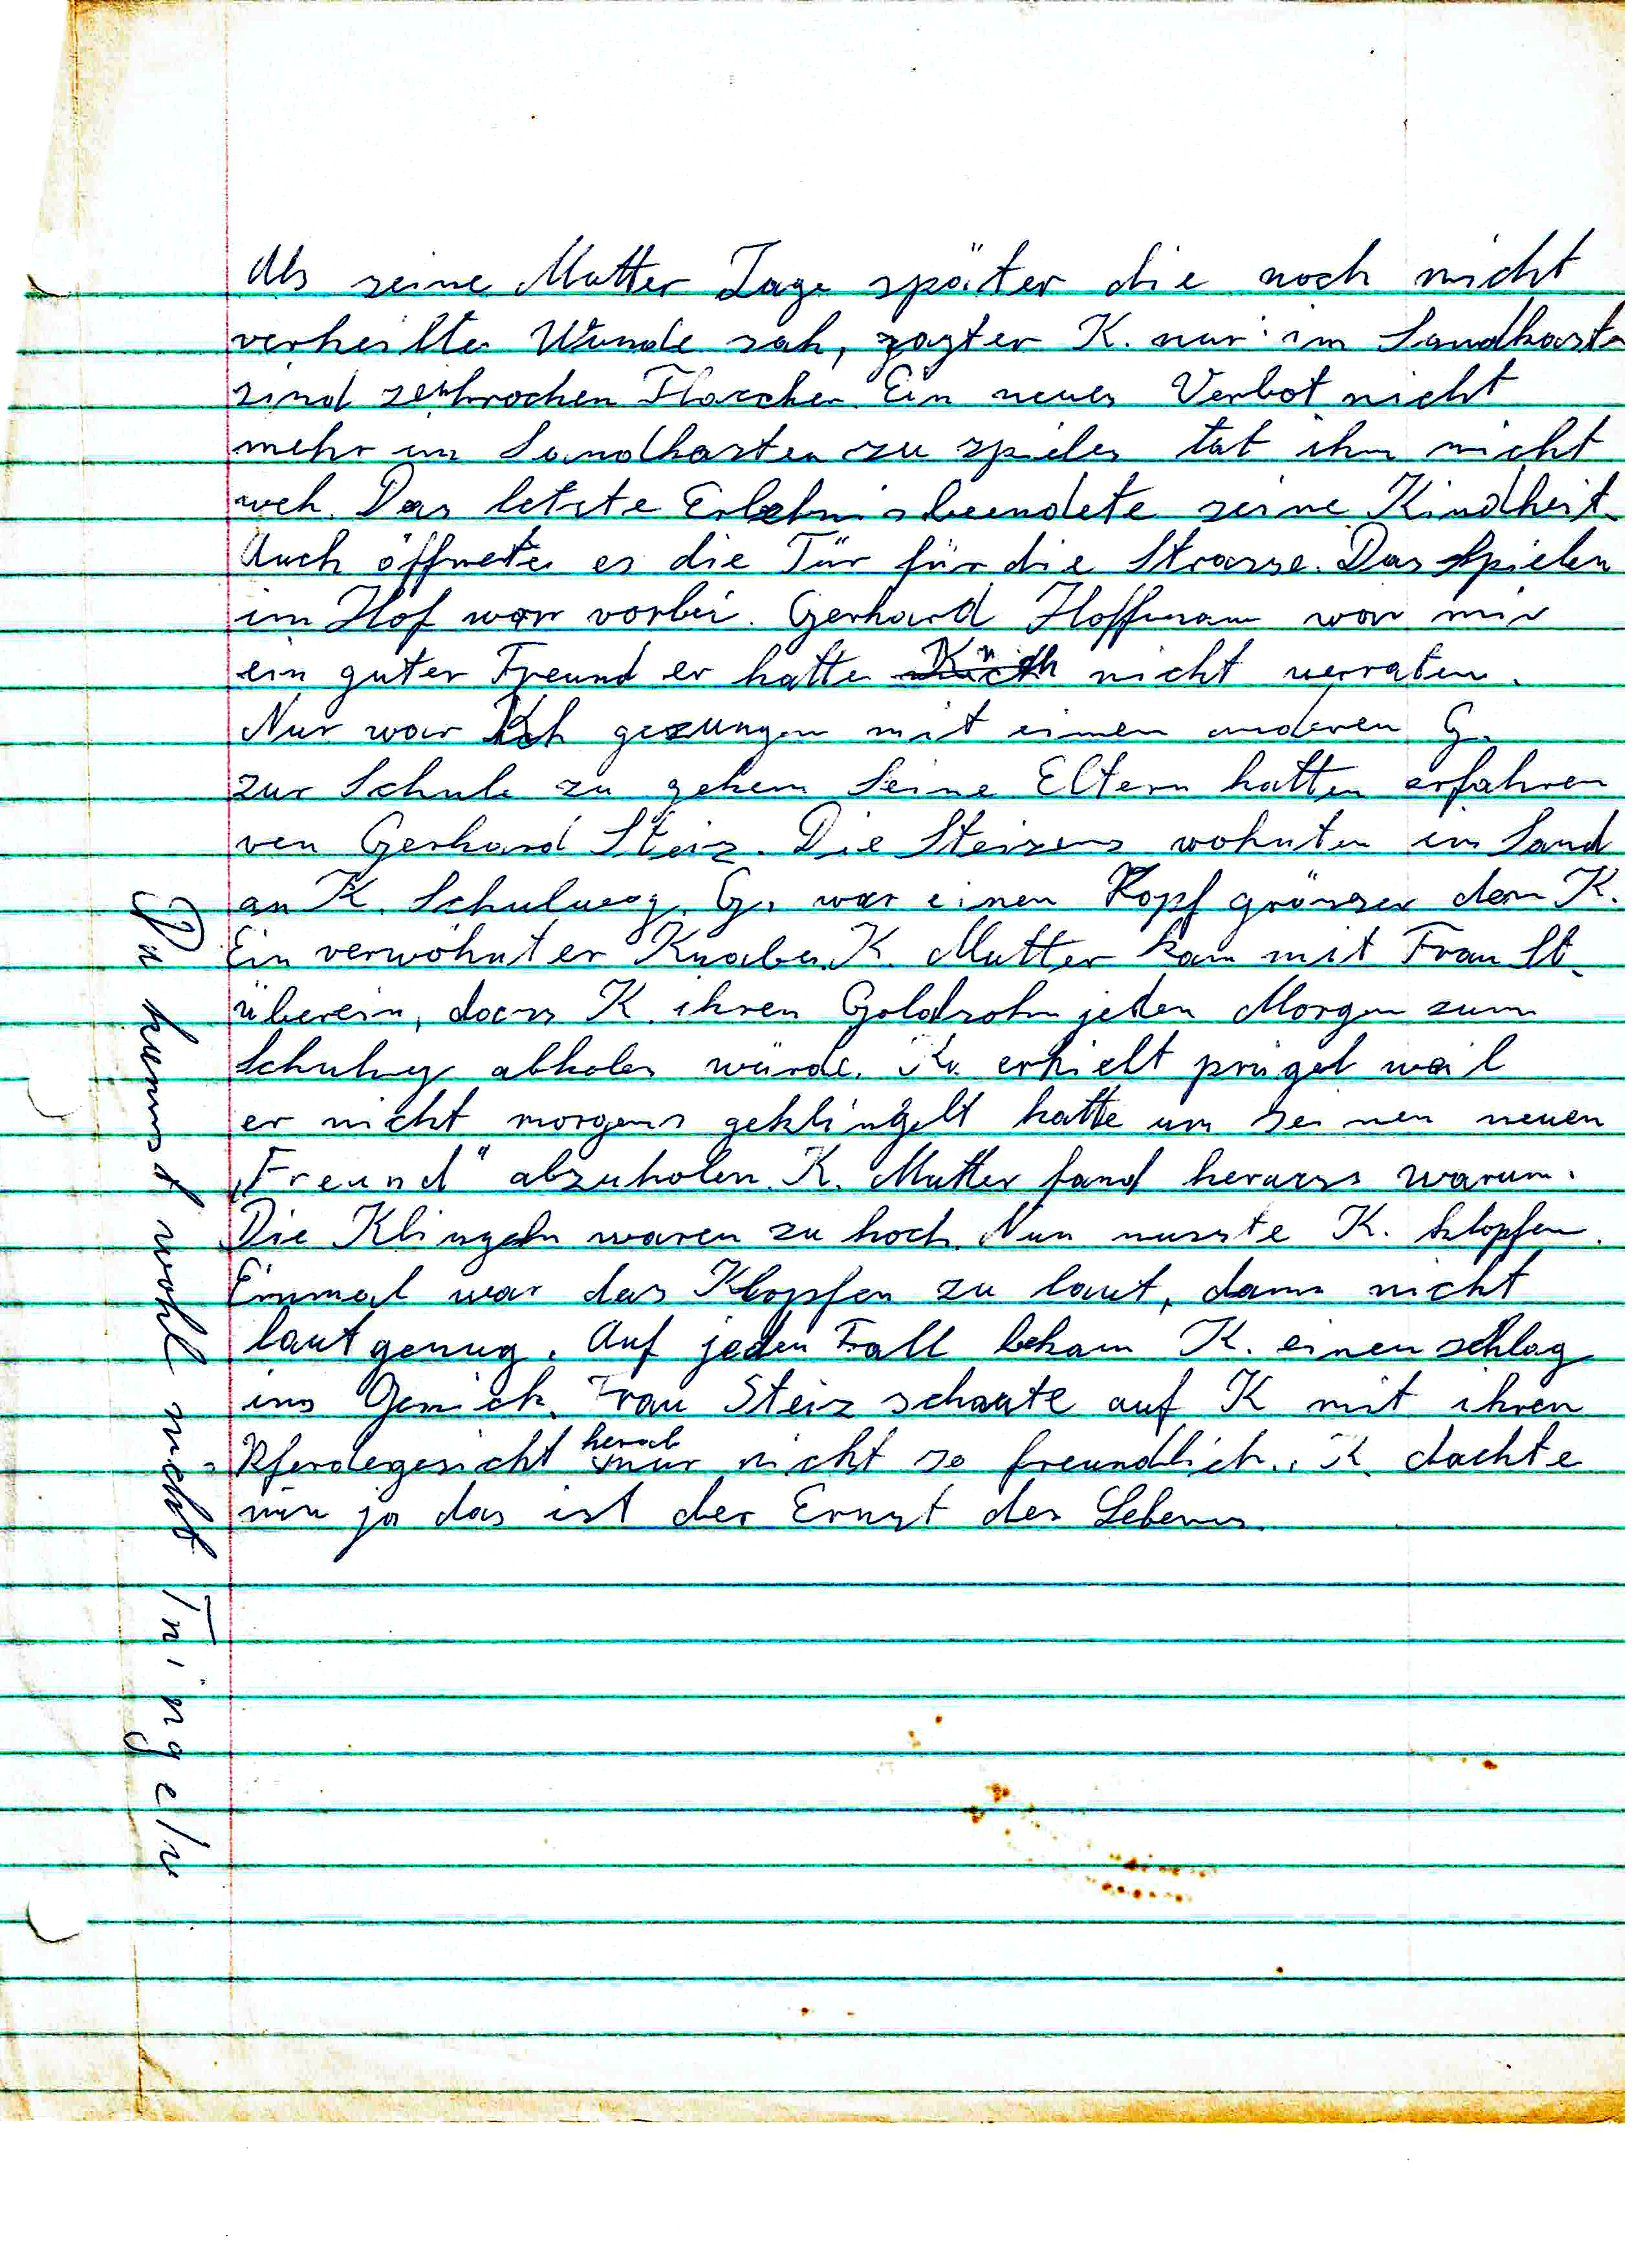 Als seine Mutter Tage später die noch nicht
verheilte Wunde sah, sagter K. nur im Sandkaste
sind zerbrochen Flaschen. Ein neues Verbot nicht
mehr im Sandkasten zu spielen tat ihm nicht
weh. Das letzte Erlebnis beendete seine Kindheit.
Auch öffnete es die Tür für die Strasse. Das Spielen
im Hof war vorbei. Gerhard Hoffmann war mir
ein guter Freund er hatte nicht verraten.
Nur war K gezungen mit einen anderen G.
zur Schule zu gehen Seine Eltern hatten erfahren
von Gerhard Steiz. Die Steizens wohnten im Sand
an K. Schulweg. G. war einen Kopf grösser den K.
Ein verwöhnter Knabe. K. Mutter kam mit Frau St.
überein, dass K. ihren Goldsohn jeden Morgen zum
Schulweg abholen würde. K. erhielt prügel weil
er nicht morgens geklingelt hatte um seinen neuen
„Freund" abzuholen. K. Mutter fand herauss warum.
Die Klingeln waren zu hoch. Nun musste K. klopfen.
Einmal war das Klopfen zu laut, dann nicht
laut genug. Auf jeden Fall bekam K. einen schlag
ins Genick. Frau Steiz schaute auf K mit ihren
Pferdegesicht herab nur nicht so freundlich. K. dachte
nun ja das ist der Ernst des Lebens.
Du kennst wohl nicht Tringeln